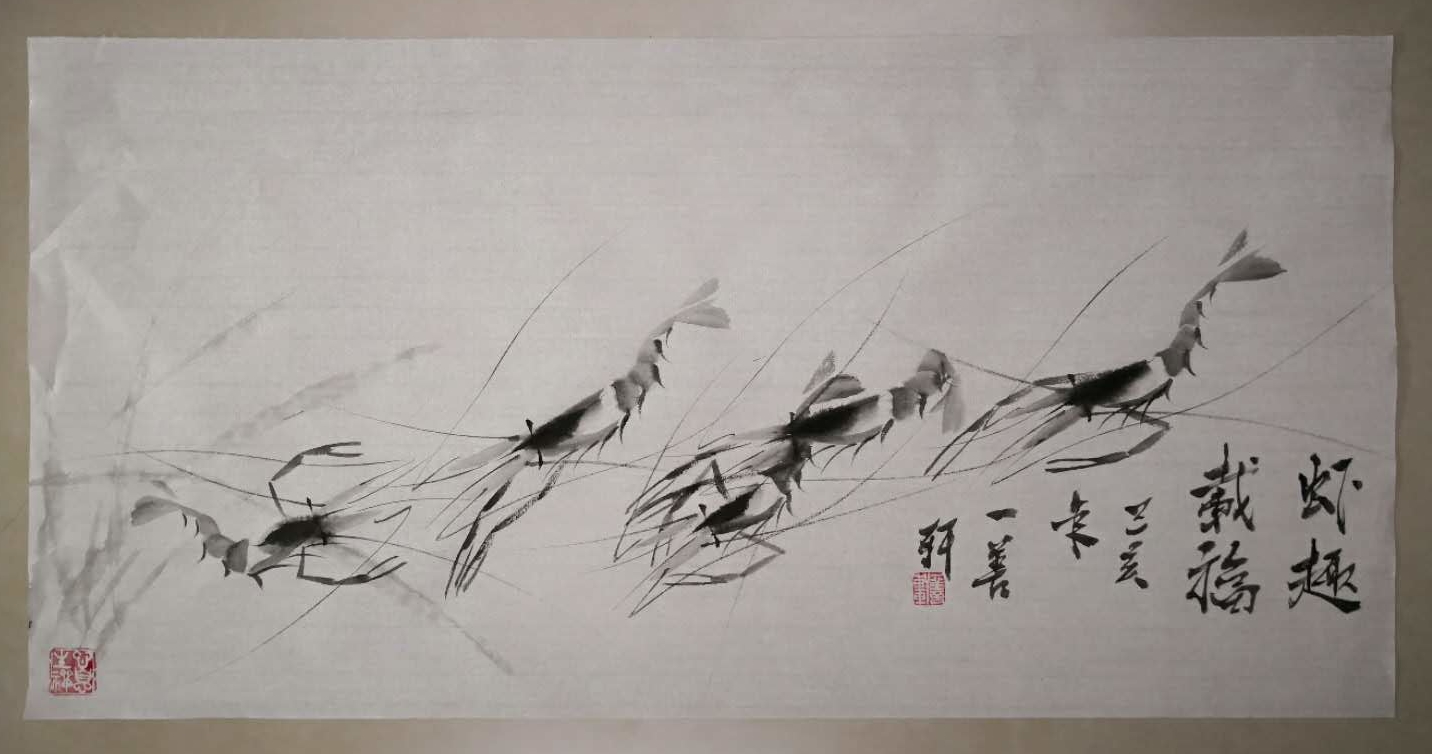 虾趣
载福
己亥
年
一善
轩